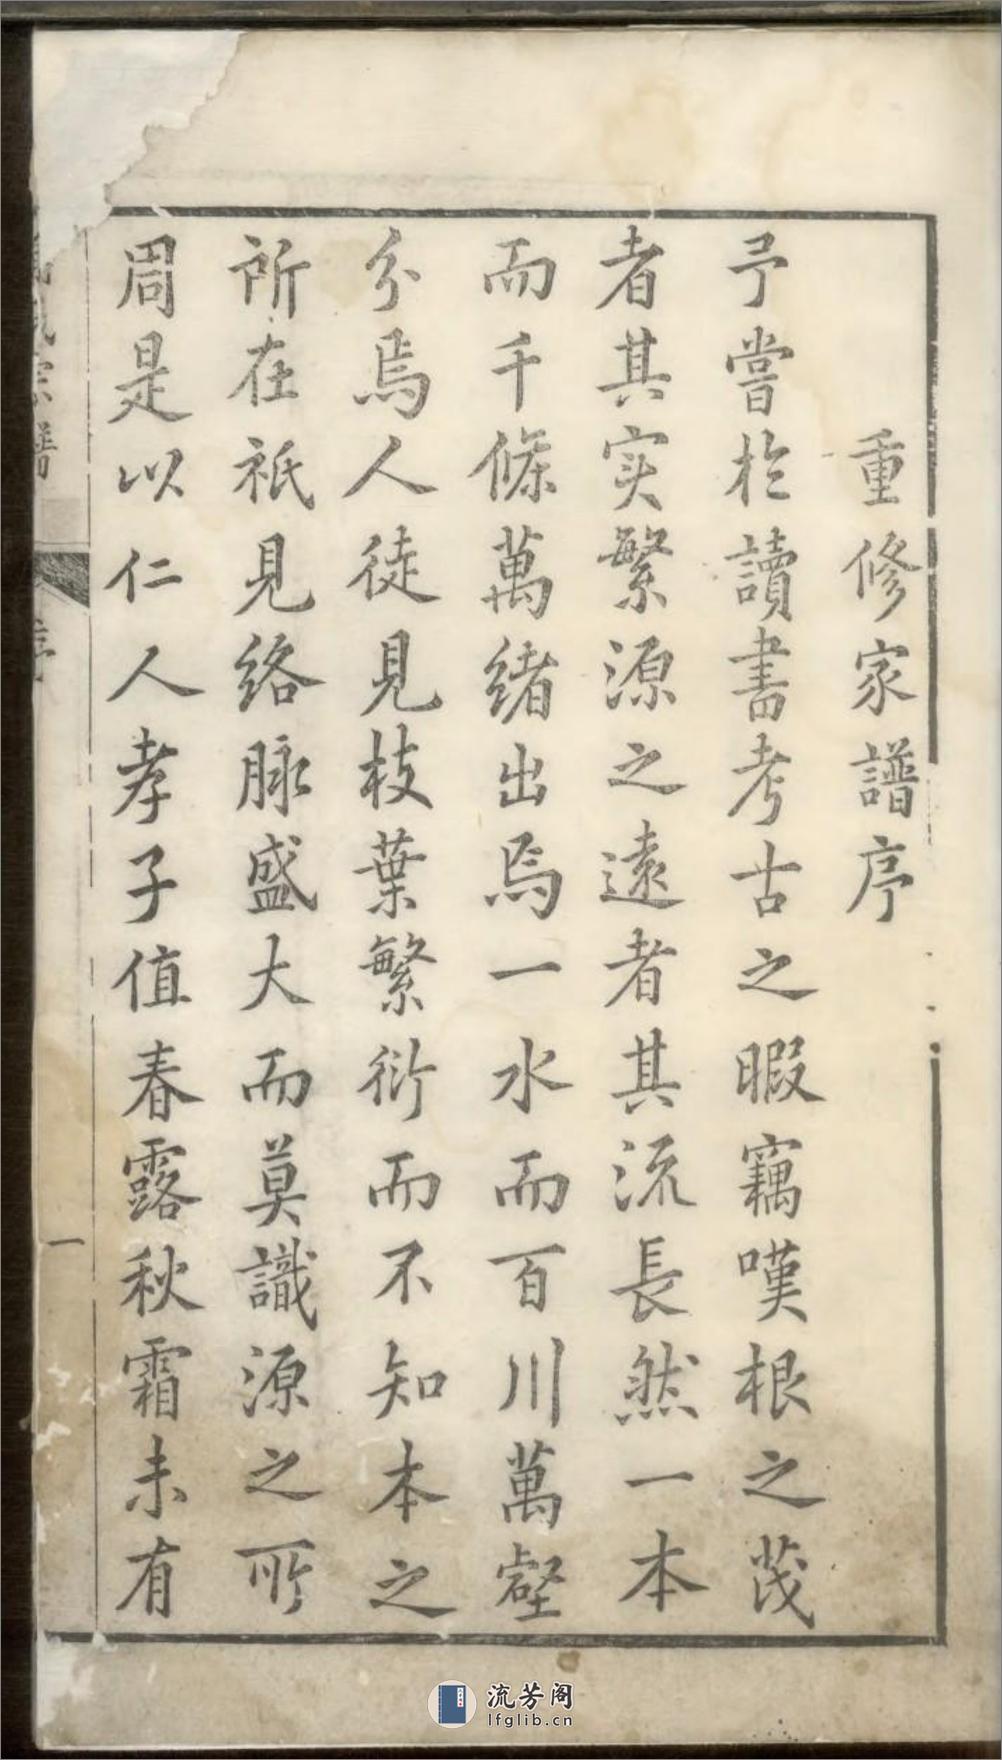 重修家譜序
予嘗於讀書考古之暇竊嘆根之茂
者其实繁源之遠者其流長然一本
而千條萬緒出焉一水而百川萬壑
分焉人徒見枝葉繁衍而不知本之
所在祇見絡脉盛大而莫識源之所
周是以仁人孝子值春露秋霜未有
宗譜
序
一
流芳阁
lfglib.cn